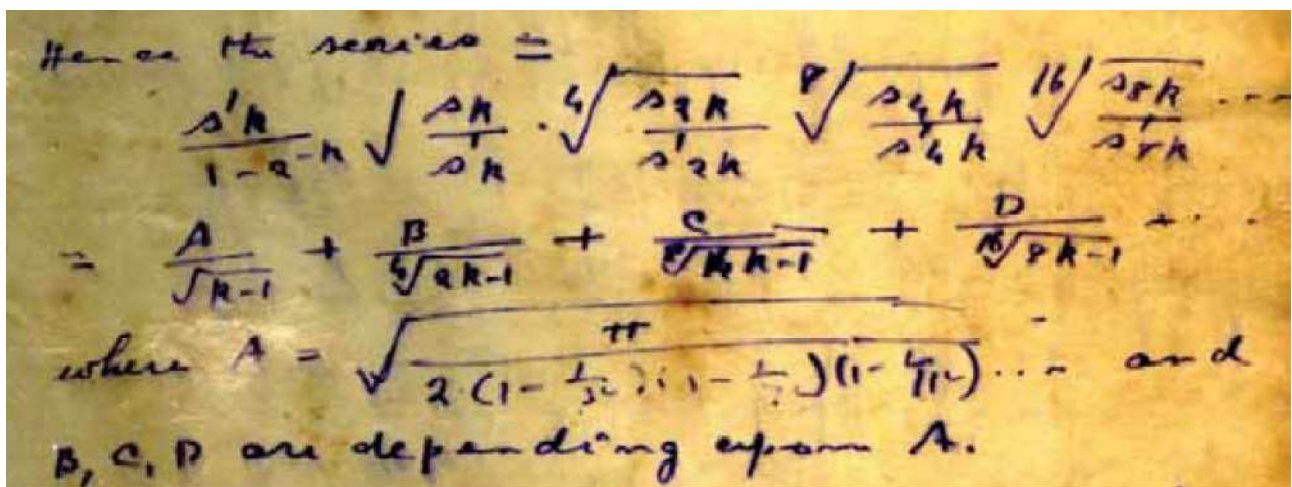 Hence the series =
s'k/(1-2^-k) √(sk/s'k) · ⁴√(s2k/s'2k) ⁸√(s4k/s'4k) ¹⁶√(s8k/s'8k) ...
= A/√(k-1) + B/⁴√(2k-1) + C/⁸√(4k-1) + D/¹⁶√(8k-1) + ...
where A = √(π/(2·(1-1/3²)(1-1/7²)(1-1/11²)...)) and
B, C, D are depending upon A.